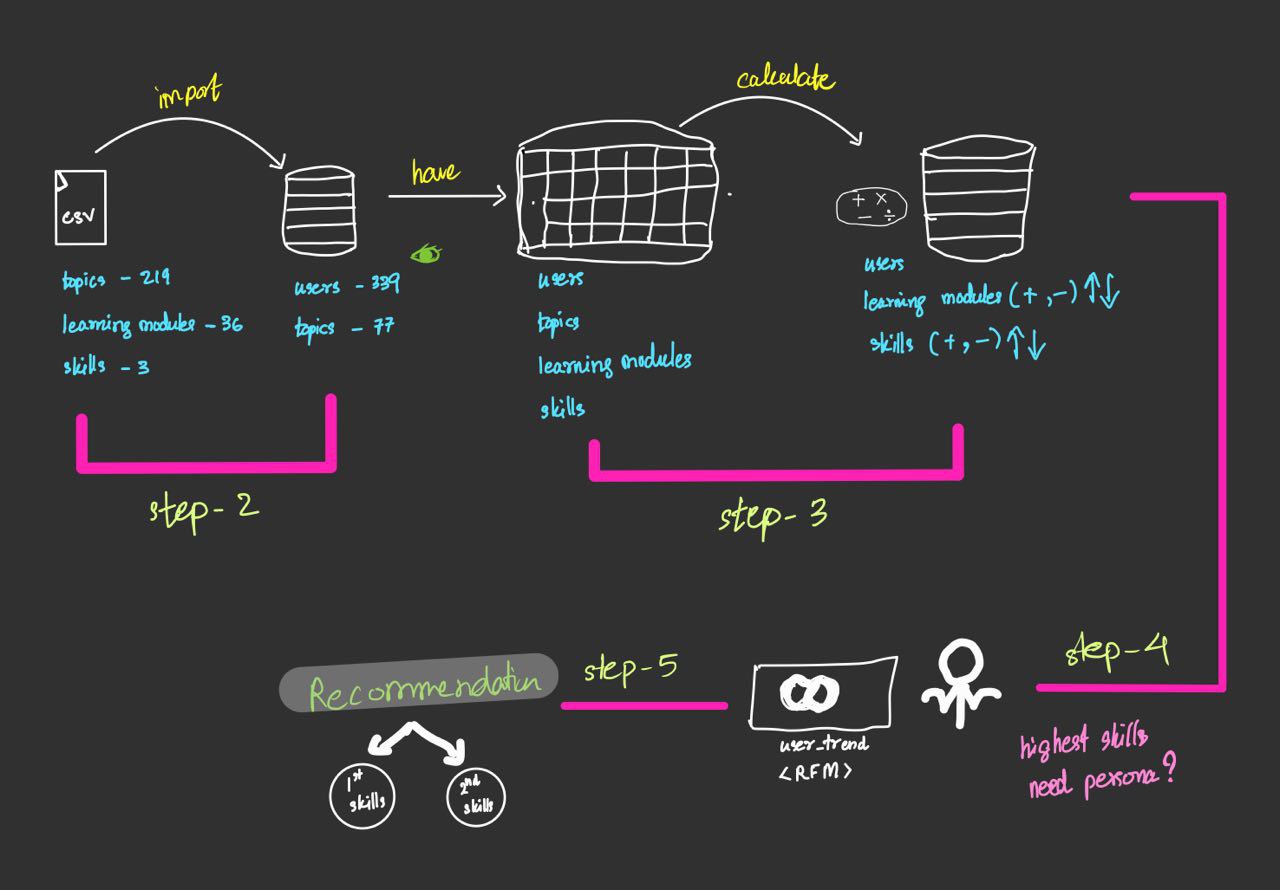 import
calculate
have
csv
+ ×
− ÷
topics - 219
learning modules - 36
skills - 3
users - 339
topics - 77
users
topics
learning modules
skills
users
learning modules (+, -) ↑↓
skills (+, -) ↑↓
step-2
step-3
step-4
highest skills
need persona?
step-5
user_trend
<RFM>
Recommendation
1st
skills
2nd
skills